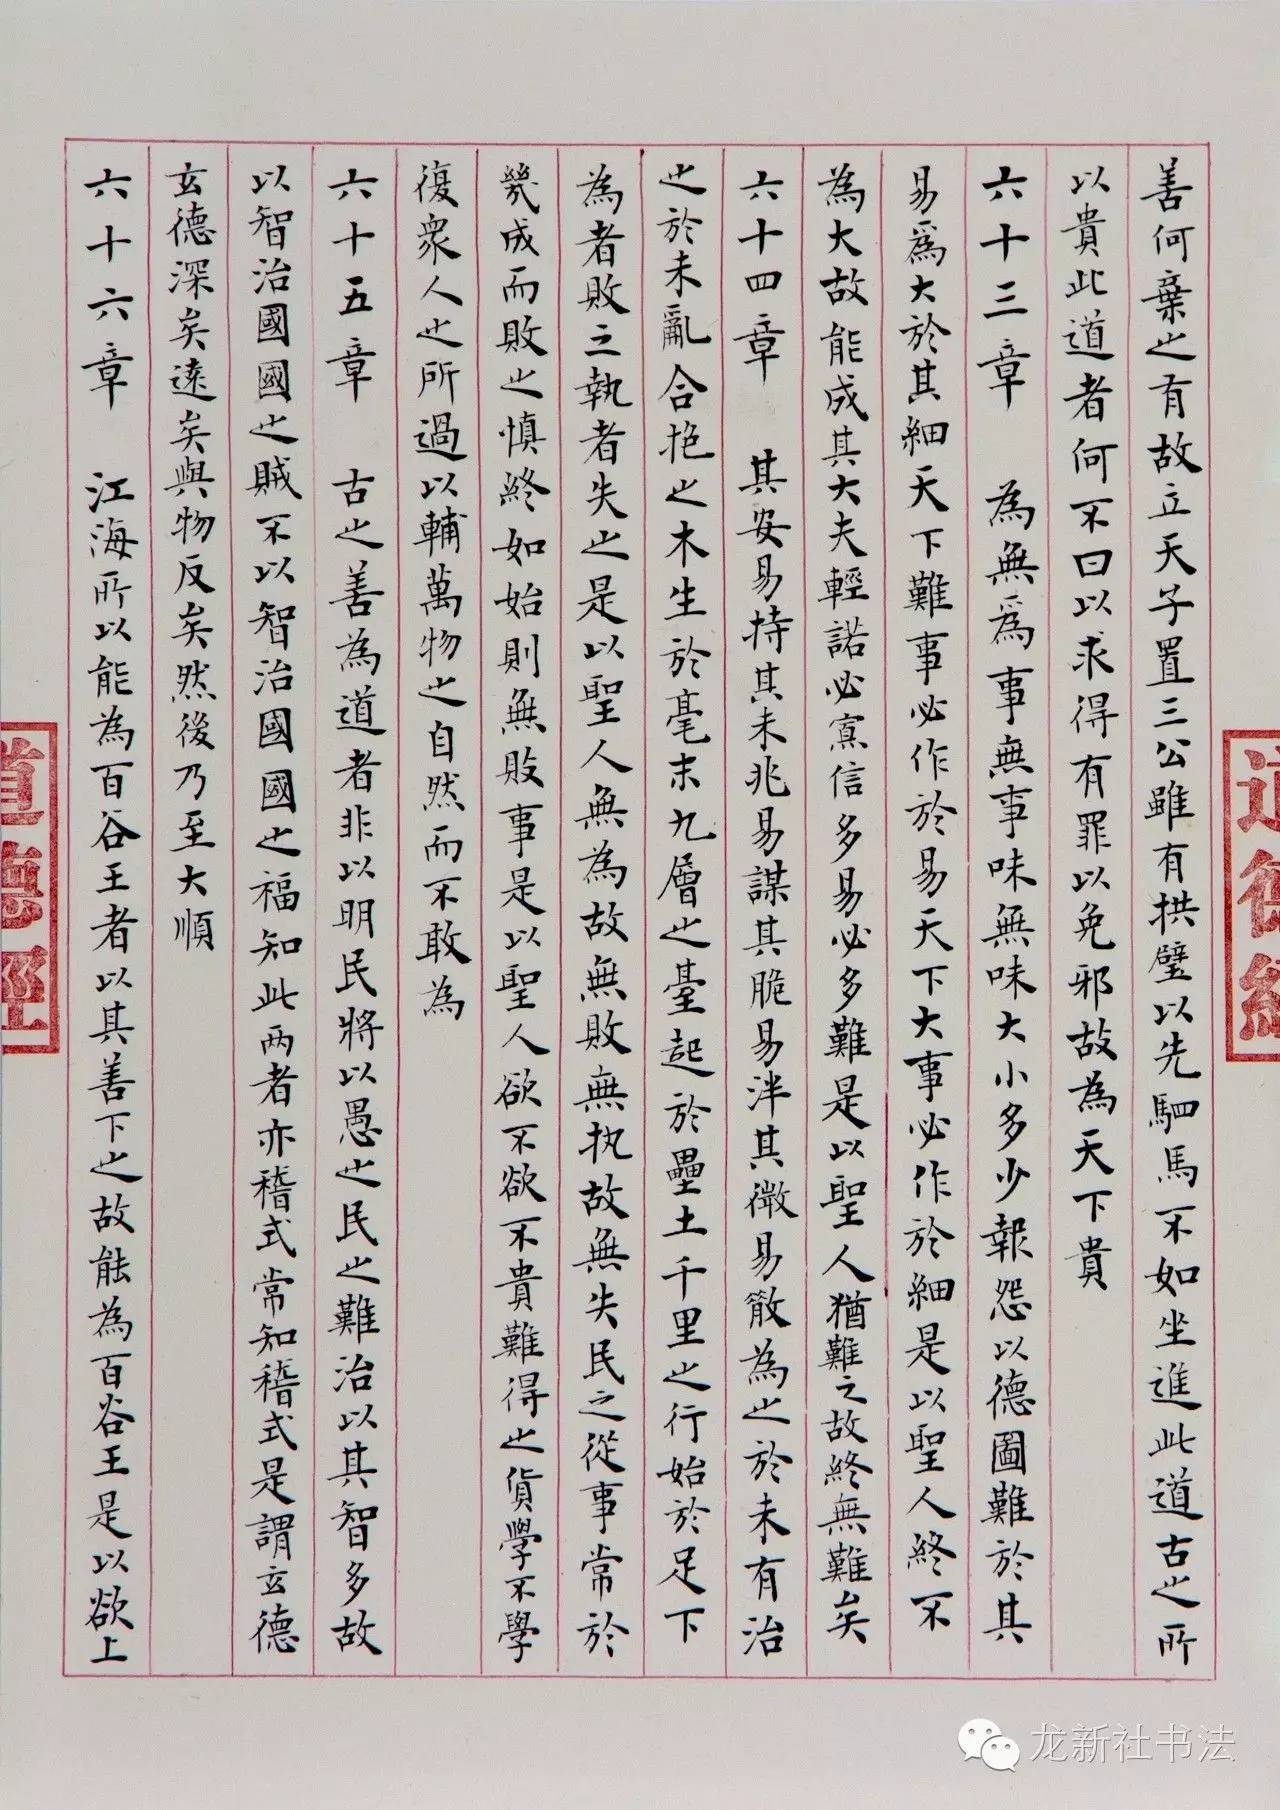 善何棄之有故立天子置三公雖有拱璧以先駟馬不如坐進此道古之所
以貴此道者何不曰以求得有罪以免邪故為天下貴
六十三章 為無爲事無事味無味大小多少報怨以德圖難於其
易爲大於其細天下難事必作於易天下大事必作於細是以聖人終不
為大故能成其大夫輕諾必寡信多易必多難是以聖人猶難之故終無難矣
六十四章 其安易持其未兆易謀其脆易泮其微易散為之於未有治
之於未亂合抱之木生於毫末九層之臺起於壘土千里之行始於足下
為者敗之執者失之是以聖人無為故無敗無执故無失民之從事常於
幾成而敗之慎終如始則無敗事是以聖人欲不欲不貴難得之貨學不學
復衆人之所過以輔萬物之自然而不敢為
六十五章 古之善為道者非以明民將以愚之民之難治以其智多故
以智治國國之賊不以智治國國之福知此两者亦稽式常知稽式是謂玄德
玄德深矣遠矣與物反矣然後乃至大順
六十六章 江海所以能為百谷王者以其善下之故能為百谷王是以欲上
道德經
道德經
龙新社书法